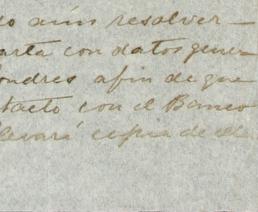 do aún resolver—
carta con datos gener
ondres afin de que
tacto con el Banco
llevará copia de ella